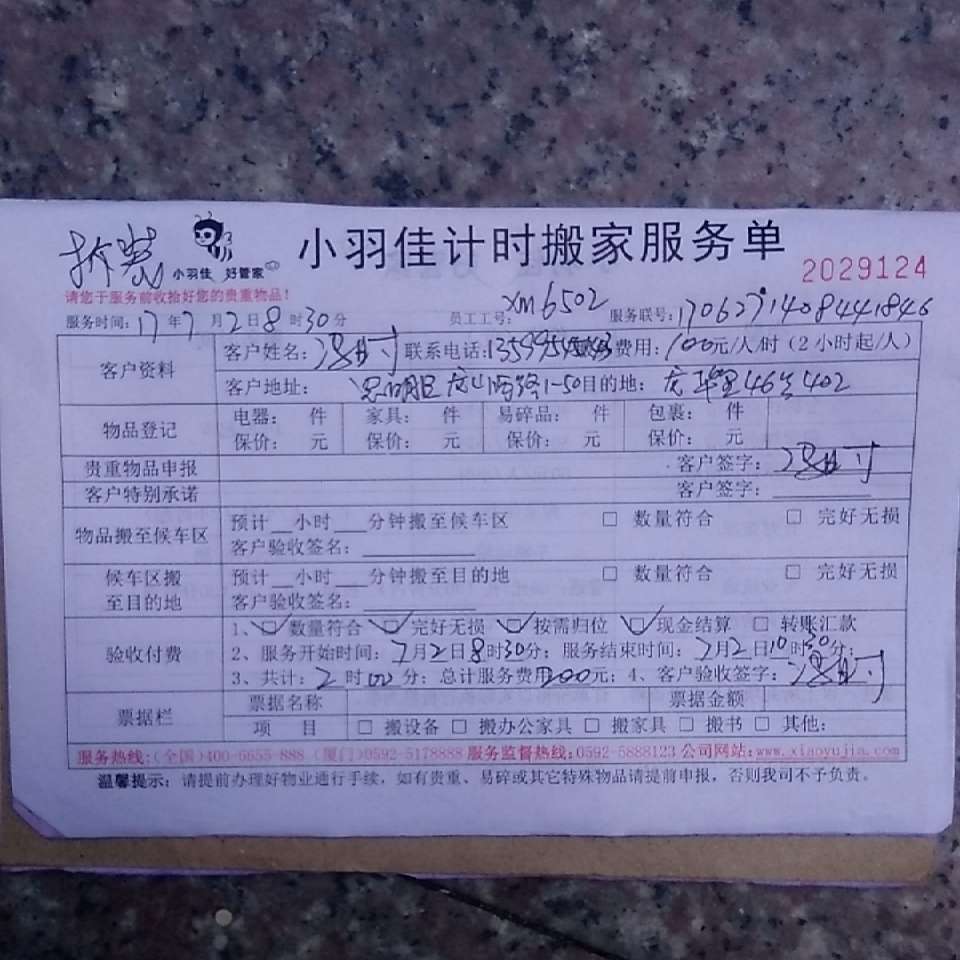 拆装 小羽佳 好管家 小羽佳计时搬家服务单
2029124
请您于服务前收拾好您的贵重物品！
服务时间：17年7月2日8时30分 员工工号：xm6502 服务联号：170627140844 1846
客户资料 客户姓名： 联系电话：1359 费用：100元/人/时（2小时起/人）
客户地址：思明区 1-50目的地： 46 402
物品登记 电器： 件 家具： 件 易碎品： 件 包裹： 件
保价： 元 保价： 元 保价： 元 保价： 元
贵重物品申报 客户签字：
客户特别承诺 客户签字：
物品搬至候车区 预计__小时__分钟搬至候车区 □ 数量符合 □ 完好无损
客户验收签名：
候车区搬至目的地 预计__小时__分钟搬至目的地 □ 数量符合 □ 完好无损
客户验收签名：
验收付费 1、☑数量符合 ☑完好无损 ☑按需归位 ☑现金结算 □ 转账汇款
2、服务开始时间：7月2日8时30分；服务结束时间：7月2日10时30分；
3、共计：2时00分；总计服务费用200元；4、客户验收签字：
票据栏 票据名称 票据金额
项 目 □ 搬设备 □ 搬办公家具 □ 搬家具 □ 搬书 □ 其他：
服务热线：（全国）400-6655-888（厦门）0592-5178888 服务监督热线：0592-5888123 公司网站：www.xiaoyujia.com
温馨提示：请提前办理好物业通行手续，如有贵重、易碎或其它特殊物品请提前申报，否则我司不予负责。